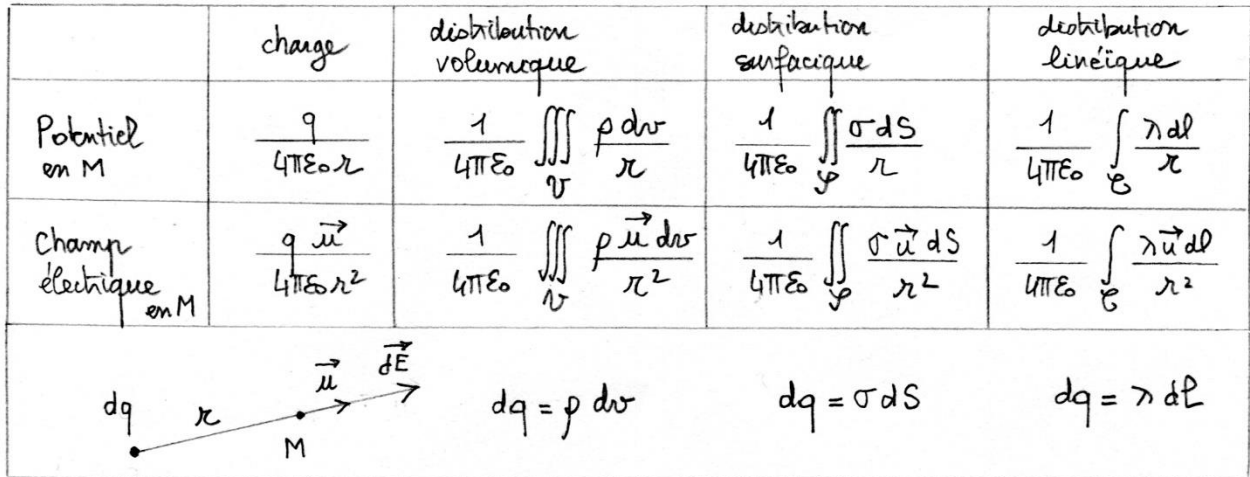 charge
distribution
volumique
distribution
surfacique
distribution
linéïque
Potentiel
en M
q / 4πε₀r
1/4πε₀ ∭_𝒱 ρ dv / r
1/4πε₀ ∬_𝒮 σ dS / r
1/4πε₀ ∫_𝒞 λ dl / r
Champ
électrique
en M
q u⃗ / 4πε₀r²
1/4πε₀ ∭_𝒱 ρ u⃗ dv / r²
1/4πε₀ ∬_𝒮 σ u⃗ dS / r²
1/4πε₀ ∫_𝒞 λ u⃗ dl / r²
dq r M u⃗ dE⃗
dq = ρ dv
dq = σ dS
dq = λ dl